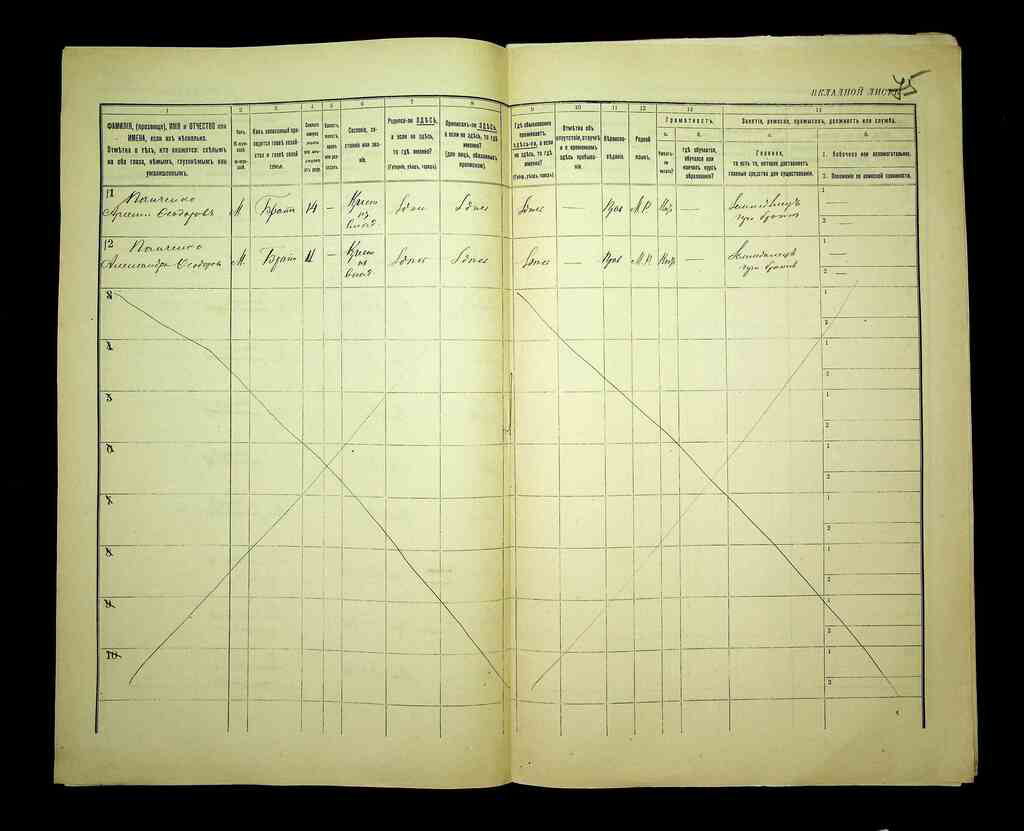 ВКЛАДНОЙ ЛИСТЪ
1 2 3 4 5 6 7 8 9 10 11 12 13 14
ФАМИЛІЯ, (прозвище), ИМЯ и ОТЧЕСТВО или
ИМЕНА, если ихъ нѣсколько.
Отмѣтка о тѣхъ, кто окажется: слѣпымъ
на оба глаза, нѣмымъ, глухонѣмымъ или
умалишеннымъ.
Полъ.
Какъ записанный приходится главѣ хозяйства и главѣ своей семьи.
Сословіе, состояніе или званіе.
Родился-ли ЗДѢСЬ,
а если не здѣсь,
то гдѣ
именно?
(Губернія, уѣздъ, городъ).
Приписанъ-ли ЗДѢСЬ,
а если не здѣсь, то гдѣ
именно?
(для лицъ, обязанныхъ
припиской).
Гдѣ обыкновенно
проживаетъ:
здѣсь-ли, а если
не здѣсь, то гдѣ
именно?
(Губер., уѣздъ, городъ).
Отмѣтка объ
отсутствіи, отлучкѣ
и о временномъ
здѣсь пребываніи.
Вѣроисповѣданіе.
Родной
языкъ.
Грамотность.
а.
Умѣетъ-ли
читать?
б.
гдѣ обучается,
обучался или
кончилъ курсъ
образованія?
Занятіе, ремесло, промыселъ, должность или служба.
а.
Главное,
то есть то, которое доставляетъ
главныя средства для существованія.
б.
1. Побочное или вспомогательное.
2. Положеніе по воинской повинности.
1
Панченко
Ѳеодоровъ
М Братъ 14 — Крест
Здѣсь Здѣсь Здѣсь — Прав М.Р. —
Земледѣлецъ
при братѣ
1 —
2 —
2
Панченко
Александръ Ѳеодоровъ
М. Братъ 11 — Крест
Здѣсь Здѣсь Здѣсь — Прав М.Р. —
Земледѣлецъ
при братѣ
1 —
2 —
3
1
2
4
1
2
5
1
2
6
1
2
7
1
2
8
1
2
9
1
2
10
1
2